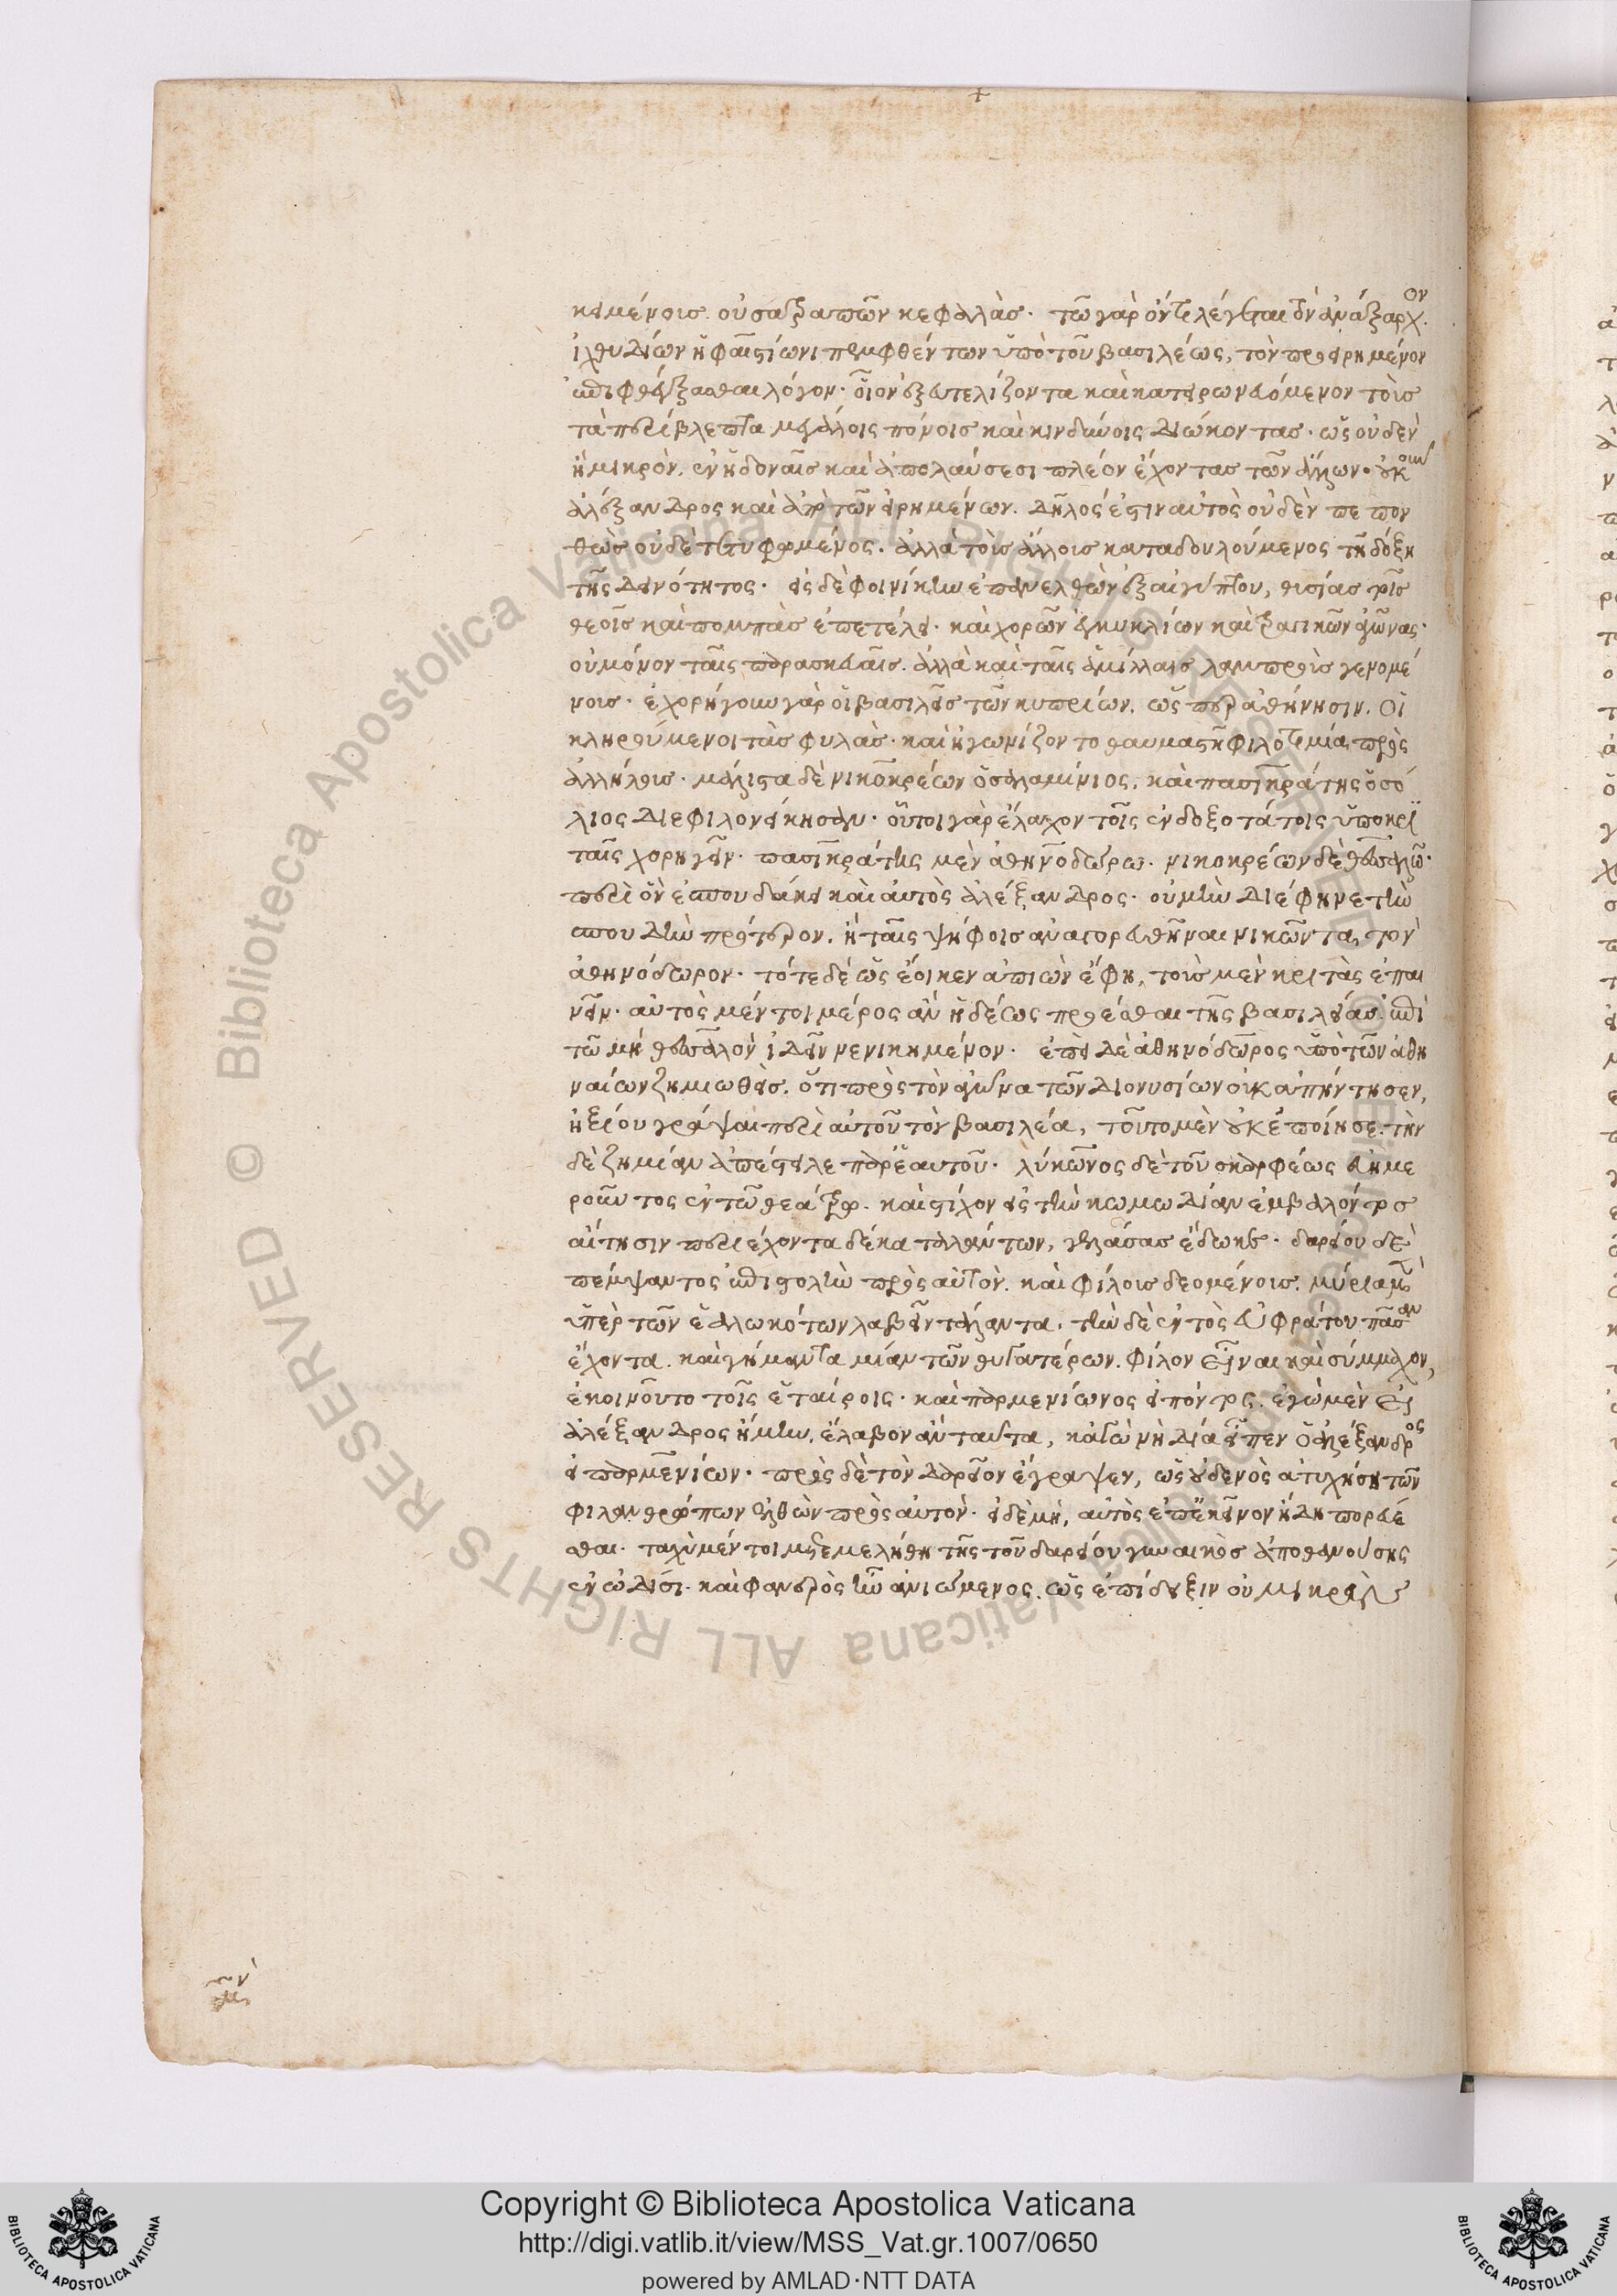 κειμένοις οὐ σατραπῶν κεφαλάς. τῶ γὰρ ὄντι λέγεται τὸν ἀνάξαρχον
ἰχθυδίων ἡφαιστίωνι πεμφθέντων ὑπὸ τοῦ βασιλέως, τὸν προειρημένον
ἐπιφθέγξασθαι λόγον· οἷον ἐξευτελίζοντα καὶ κατειρωνευόμενον τοὺς
τὰ περίβλεπτα μεγάλοις πόνοις καὶ κινδύνοις διώκοντας· ὡς οὐδὲν
ἢ μικρὸν, ἐν ἡδοναῖς καὶ ἀπολαύσεσι πλέον ἔχοντας τῶν ἄλλων. οὐκοῦν
ἀλέξανδρος καὶ ἀπὸ τῶν εἰρημένων. δῆλός ἐστιν αὐτὸς οὐδὲν πεπον
θὼς οὐδὲ τετυφωμένος. ἀλλὰ τοὺς ἄλλους καταδουλούμενος τῆ δόξη
τῆς θειότητος. εἰς δὲ φοινίκην ἐπανελθὼν ἐξ αἰγύπτου, θυσίας τοῖς
θεοῖς καὶ πομπὰς ἐπετέλει. καὶ χορῶν ἐγκυκλίων καὶ τραγικῶν ἀγῶνας·
οὐ μόνον ταῖς παρασκευαῖς. ἀλλὰ καὶ ταῖς ἁμίλλαις λαμπροὺς γενομέ
νους. ἐχορήγουν γὰρ οἱ βασιλεῖς τῶν κυπρίων, ὥσπερ ἀθήνησιν. οἱ
κληρούμενοι τὰς φυλὰς· καὶ ἠγωνίζοντο θαυμαστῆ φιλοτιμία πρὸς
ἀλλήλους. μάλιστα δὲ νικοκρέων ὁ σαλαμίνιος, καὶ πασικράτης ὁ σό
λιος διεφιλονείκησαν. οὗτοι γὰρ ἔλαχον τοῖς ἐνδοξοτάτοις ὑποκρι
ταῖς χορηγεῖν. πασικράτης μὲν ἀθηνοδώρω. νικοκρέων δὲ θεσσαλῶ.
περὶ ὃν ἐσπουδάκει καὶ αὐτὸς ἀλέξανδρος. οὐ μὴν διέφηνε τὴν
σπουδὴν πρότερον, ἢ ταῖς ψήφοις ἀναγορευθῆναι νικῶντα τὸν
ἀθηνόδωρον. τότε δὲ ὡς ἔοικεν ἀπιὼν ἔφη, τοὺς μὲν κριτὰς ἐπαι
νεῖν. αὐτὸς μέντοι μέρος ἂν ἡδέως προέσθαι τῆς βασιλείας ἐπὶ
τῶ μὴ θεσσαλὸν ἰδεῖν νενικημένον. ἐπεὶ δὲ ἀθηνόδωρος ὑπὸ τῶν ἀθη
ναίων ζημιωθεὶς, ὅτι πρὸς τὸν ἀγῶνα τῶν διονυσίων οὐκ ἀπήντησεν,
ἠξίου γράψαι περὶ αὐτοῦ τὸν βασιλέα, τοῦτο μὲν οὐκ ἐποίησε. τὴν
δὲ ζημίαν ἀπέστειλε παρ' ἑαυτοῦ. λύκωνος δὲ τοῦ σκαρφέως εὐημε
ροῦντος ἐν τῶ θεάτρω. καὶ στίχον εἰς τὴν κωμωδίαν ἐμβαλόντος
αἴτησιν περιέχοντα δέκα ταλάντων, γελάσας ἔδωκε. δαρείου δὲ
πέμψαντος ἐπιστολὴν πρὸς αὐτὸν. καὶ φίλους δεομένους, μύρια μὲν
ὑπὲρ τῶν ἑαλωκότων λαβεῖν τάλαντα, τὴν δὲ ἐντὸς εὐφράτου πᾶσαν
ἔχοντα, καὶ γήμαντα μίαν τῶν θυγατέρων, φίλον εἶναι καὶ σύμμαχον,
ἐκοινοῦτο τοῖς ἑταίροις. καὶ παρμενίωνος εἰπόντος, ἐγὼ μὲν εἰ
ἀλέξανδρος ἤμην, ἔλαβον ἂν ταῦτα, κἀγὼ νὴ δία εἶπεν ὁ ἀλέξανδρος
εἰ παρμενίων. πρὸς δὲ τὸν δαρεῖον ἔγραψεν, ὡς οὐδενὸς ἀτυχήσει τῶν
φιλανθρώπων ἐλθὼν πρὸς αὐτόν. εἰ δὲ μὴ, αὐτὸς ἐπ' ἐκεῖνον ἤδη πορεύε
σθαι. ταχὺ μέντοι μετεμελήθη τῆς τοῦ δαρείου γυναικὸς ἀποθανούσης
ἐν ὠδῖσι. καὶ φανερὸς ἦν ἀνιώμενος, ὡς ἐπίδειξιν οὐ μικρὰν
Copyright © Biblioteca Apostolica Vaticana
http://digi.vatlib.it/view/MSS_Vat.gr.1007/0650
powered by AMLAD·NTT DATA